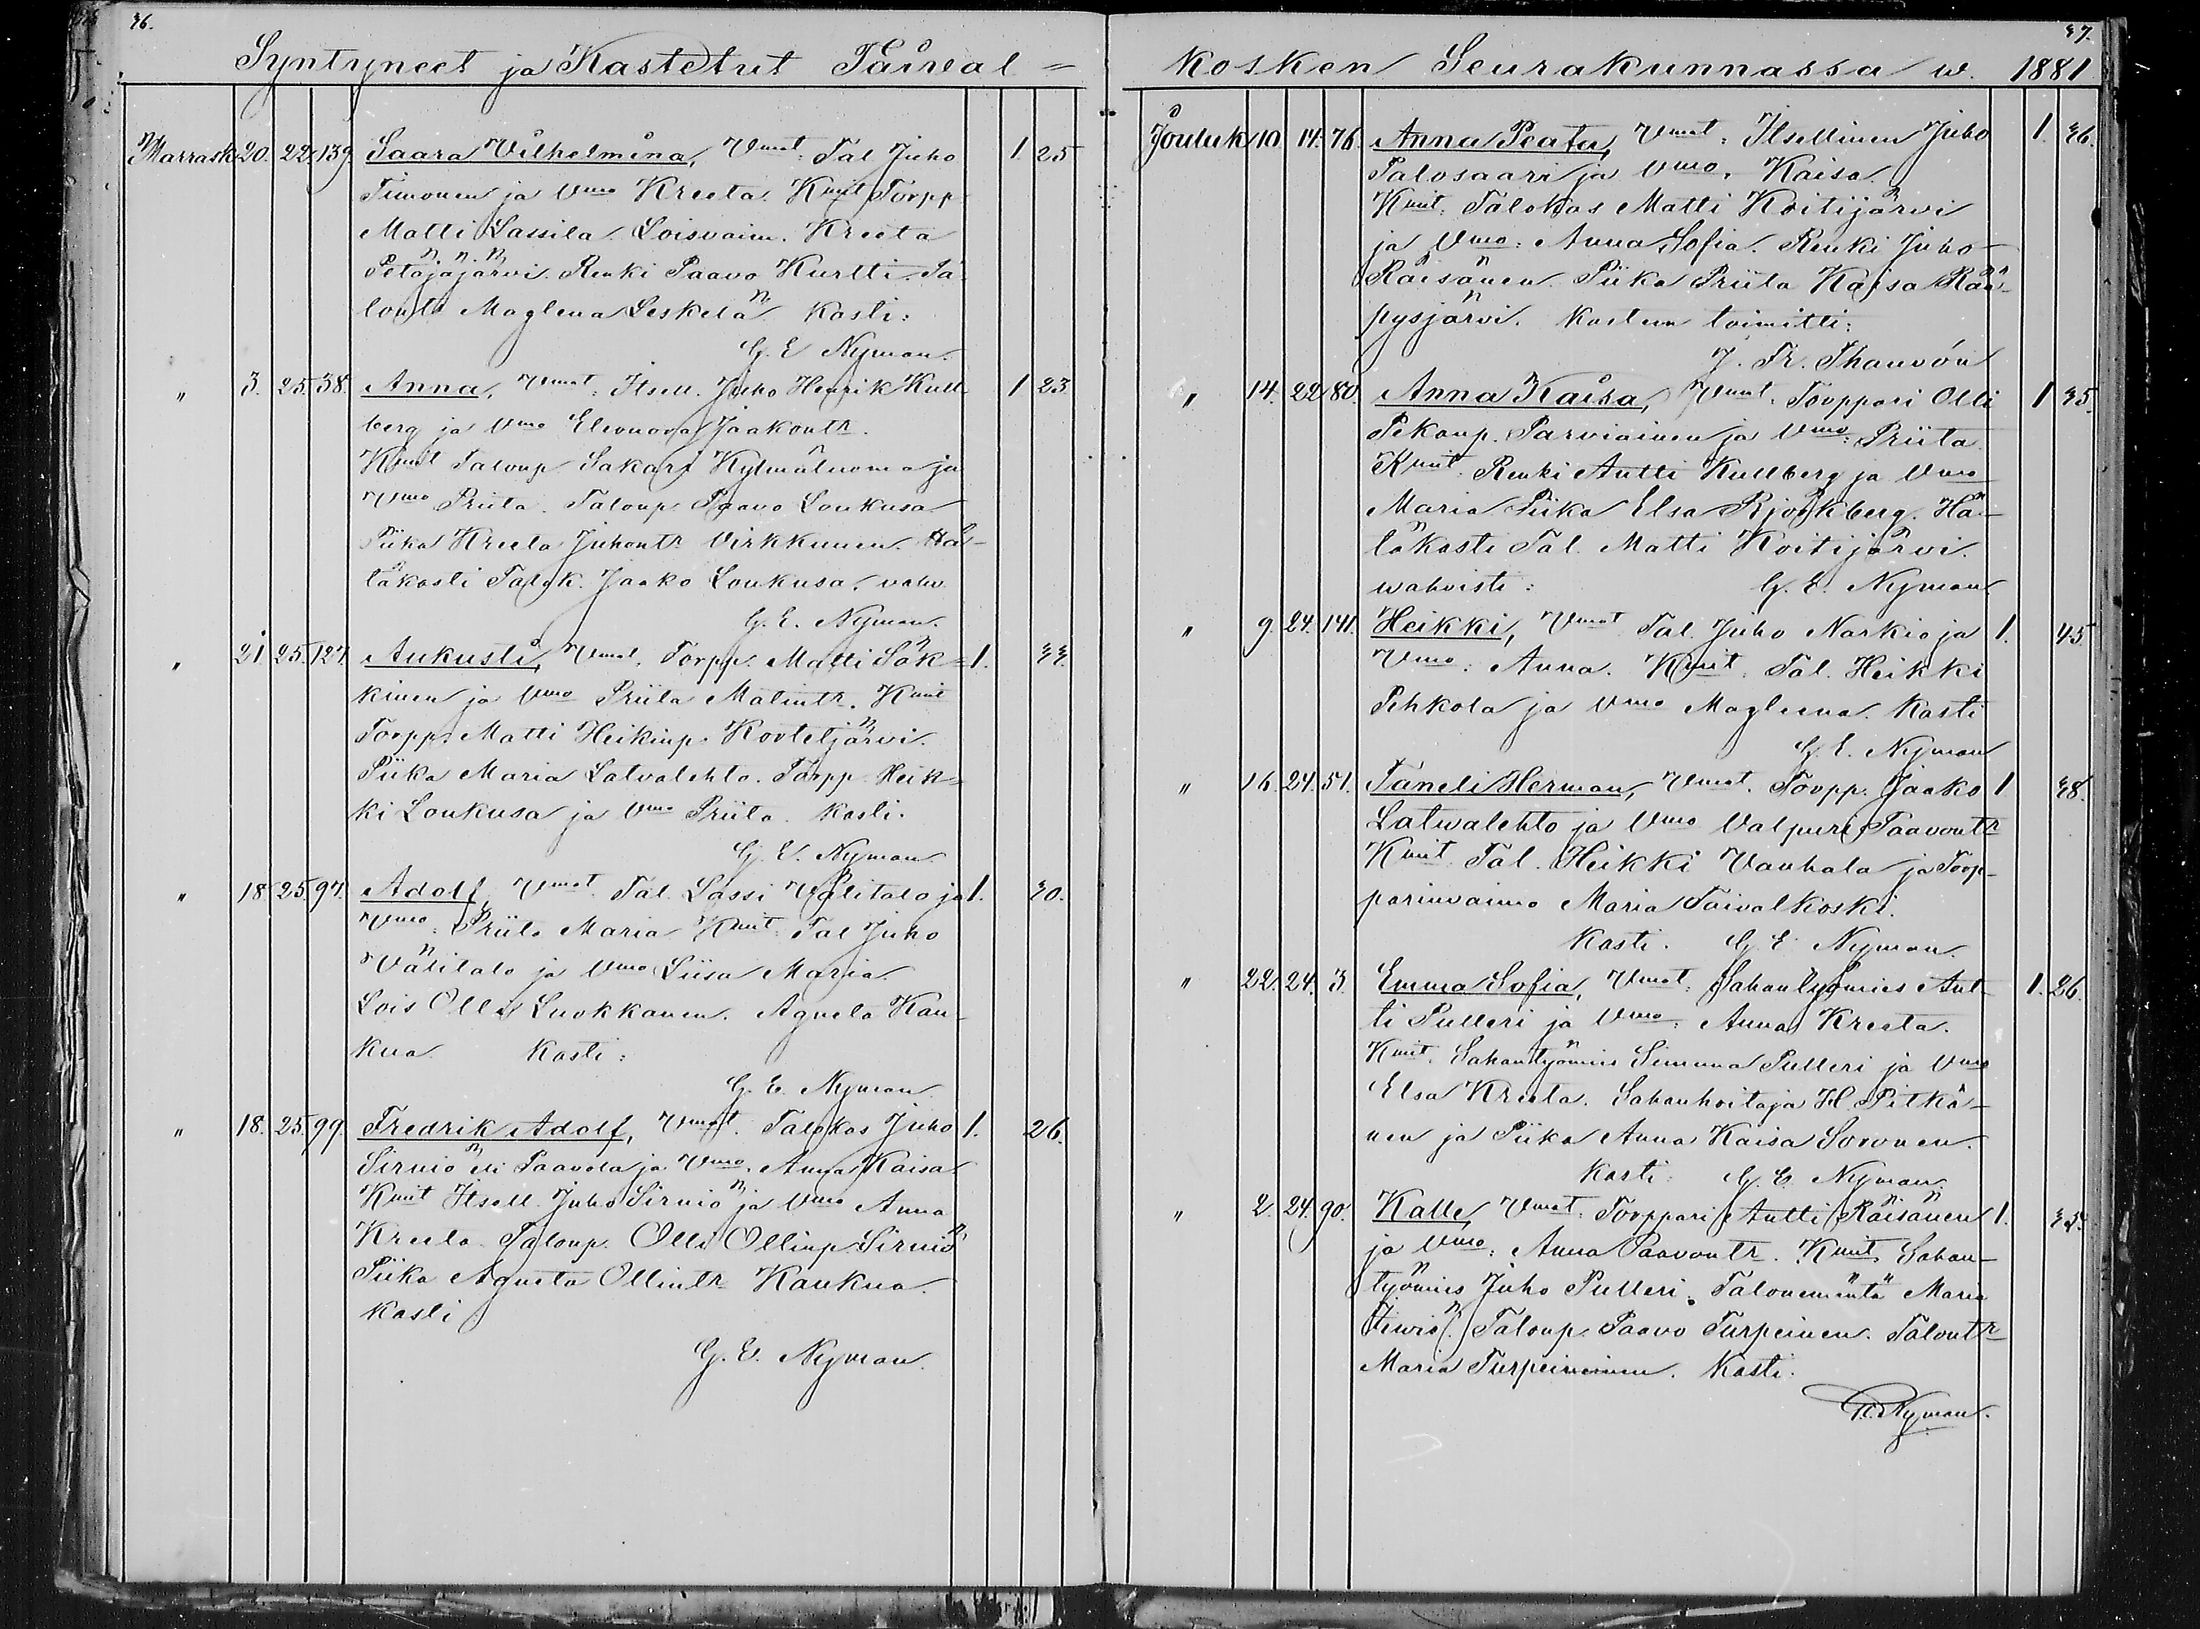 36.
Syntyneet ja Kastetut Taival=
Marrask. 20. 22. 139. Saara Wilhelmina, Vmat: Tal. Juho 1 25
Timonen ja Vmo Kreeta. Kmit Torpp
Matti Lassila. Loisvaim. Kreeta
Petäjäjärvi. Renki Paavo Kurtti. Ta-
lontr Maglena Leskelä. Kasti:
G. E. Nyman.
" 3. 25. 38. Anna, Vmat: Itsell. Juho Henrik Kull- 1 23.
berg ja Vmo Eleonora Jaakontr.
Kmit Talonp Sakari Kylmäluoma ja
Vmo Priita. Talonp. Paavo Loukusa
Piika Kreeta Juhontr. Virkkunen. Hä-
täkasti Talok. Jaako Loukusa. vahv.
G. E. Nyman.
" 21. 25. 127. Aukusti, Vmat. Torpp. Matti Säk= 1. 33.
kinen ja Vmo Priita Matintr. Kmit
Torpp. Matti Heikinp. Kovletjärvi.
Piika Maria Latvalehto. Torpp. Heik=
ki Loukusa ja Vmo Priita. Kasti.
G. E. Nyman.
" 18. 25. 97. Adolf, Vmat. Tal. Lassi Välitalo ja 1. 30.
Vmo: Priita Maria Kmit: Tal Juho
Välitalo ja Vmo Liisa Maria.
Lois Olli Luokkanen. Agneta Kau-
kua. Kasti:
G. E. Nyman.
" 18. 25. 99. Fredrik Adolf, Vmat. Talokas Juho 1. 26.
Sirniö eli Paavola ja Vmo. Anna Kaisa
Kmit Itsell. Juho Sirniö ja Vmo Anna
Kreeta. Talonp. Olli Ollinp. Sirniö
Piika Agneta Ollintr Kaukua.
Kasti
G. E. Nyman.
37.
kosken Seurakunnassa w. 1881
Jouluk 10. 14. 76. Anna Peata, Vmat: Itsellinen Juho 1. 36.
Talosaari ja Vmo. Kaisa.
Kmit. Talokas Matti Koitijärvi
ja Vmo: Anna Sofia. Renki Juho
Räisänen. Piika Priita Kaisa Rää-
pysjärvi. Kasteen toimitti:
J. Fr. Thauvón
" 14. 22. 80. Anna Kaisa, Vmat. Torppari Olli 1 35.
Pekanp. Parviainen ja Vmo: Priita
Kmit. Renki Antti Kullberg ja Vmo
Maria. Piika Elsa Björkberg. Hä-
täkasti Tal. Matti Koitijärvi.
wahvisti: G. E. Nyman
" 9. 24. 141. Heikki, Vmat Tal. Juho Narkio ja 1. 45
Vmo: Anna. Kmit. Tal. Heikki
Pehkola ja Vmo Magleena. Kasti
G. E. Nyman
" 16. 24. 51. Taneli Herman, Vmat. Torpp. Jaako 1 38.
Latwalehto ja Vmo Valpuri Paavontr
Kmit Tal. Heikki Vanhala ja Torp-
parinvaimo Maria Taivalkoski.
Kasti. G. E. Nyman.
" 22. 24. 3. Emma Sofia, Vmat: Sahantyömies Ant- 1. 26.
ti Pulleri ja Vmo: Anna Kreeta.
Kmit. Sahantyömies Simuna Pulleri ja Vmo
Elsa Kreeta. Sahanhoitaja H. Pitkä-
nen ja Piika Anna Kaisa Soronen.
Kasti: G. E. Nyman.
" 2. 24. 90. Kalle, Vmat. Torppari Antti Räisänen 1.
ja Vmo: Anna Paavontr. Kmit. Sahan-
työmies Juho Pulleri. Talonemäntä Maria
Talonp. Paavo Turpeinen. Talontr
Maria Turpeineinen. Kasti.
G. E. Nyman.